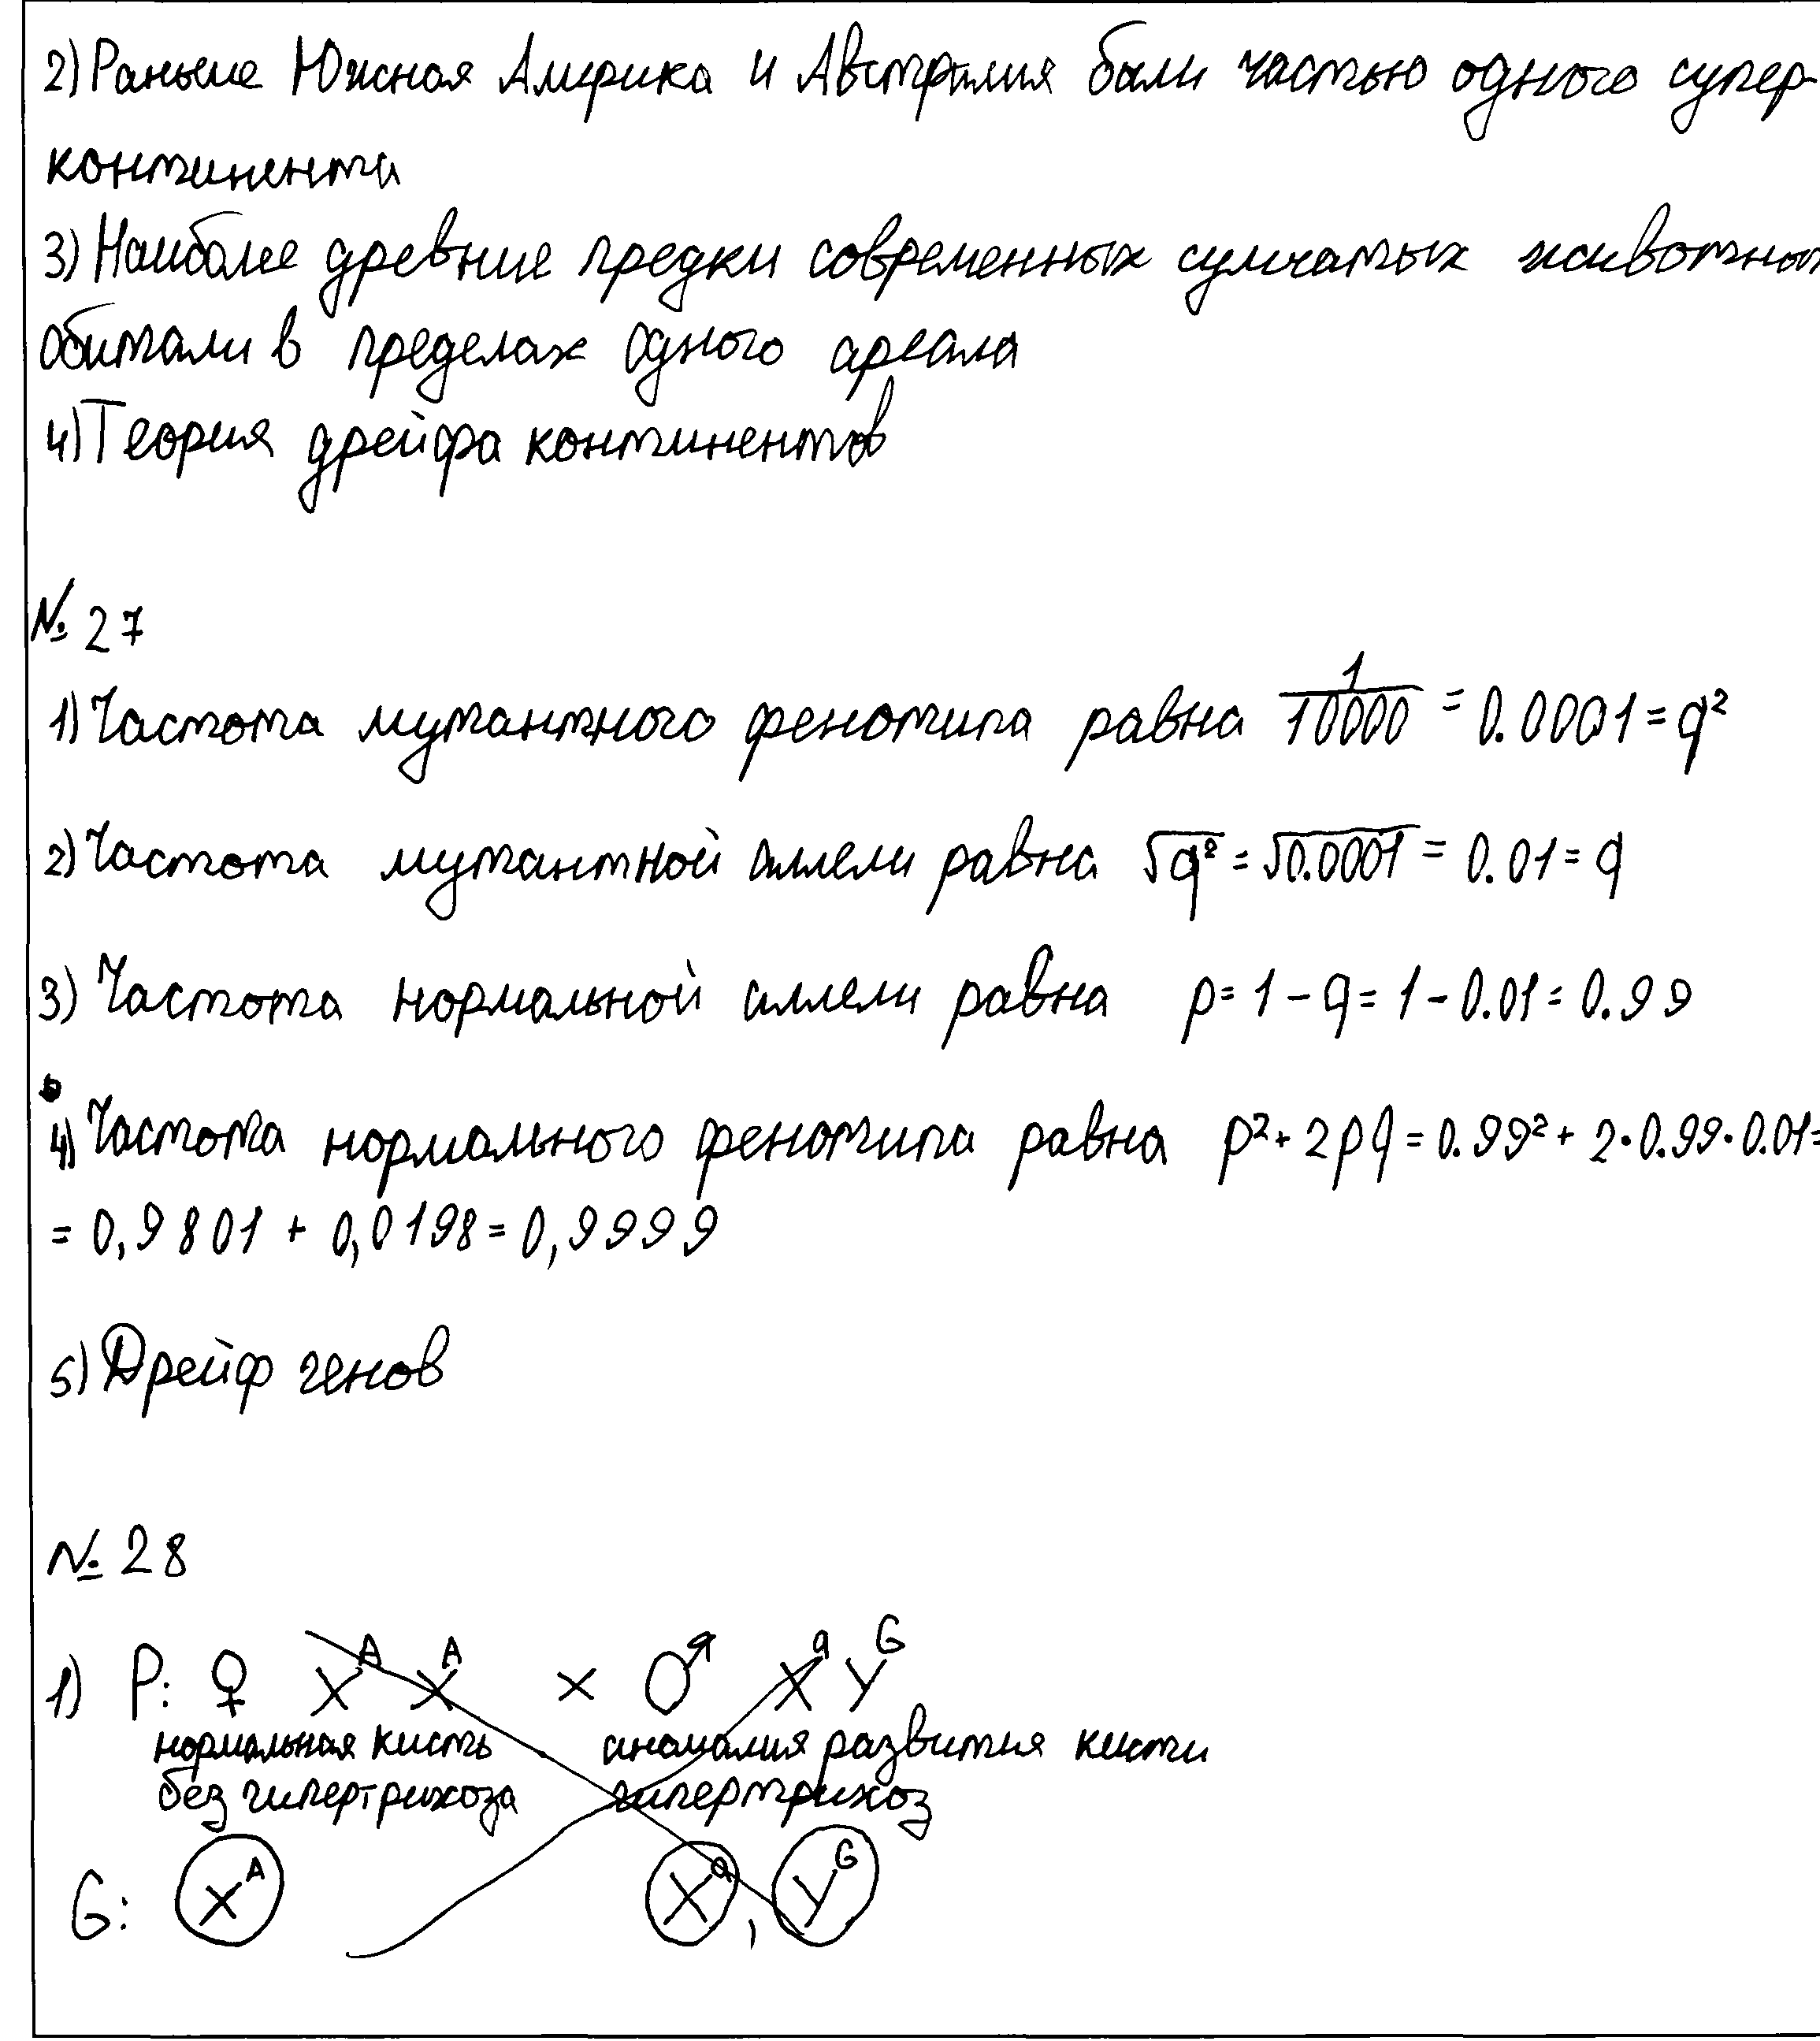 2) Раньше Южная Америка и Австралия были частью одного супер-
континента
3) Наиболее древние предки современных сумчатых животных
обитали в пределах одного ареала
4) Теория дрейфа континентов
№ 27
1) Частота мутантного фенотипа равна 1/10000 = 0.0001 = q²
2) Частота мутантной аллели равна √q² = √0.0001 = 0.01 = q
3) Частота нормальной аллели равна p = 1 - q = 1 - 0.01 = 0.99
4) Частота нормального фенотипа равна p² + 2pq = 0.99² + 2·0.99·0.01 =
= 0,9801 + 0,0198 = 0,9999
5) Дрейф генов
№ 28
1) P: ♀ Xᴬ Xᴬ × ♂ Xᵃ Yᴳ
нормальная кисть аномалия развития кисти
без гипертрихоза гипертрихоз
G: Xᴬ Xᵃ , Yᴳ